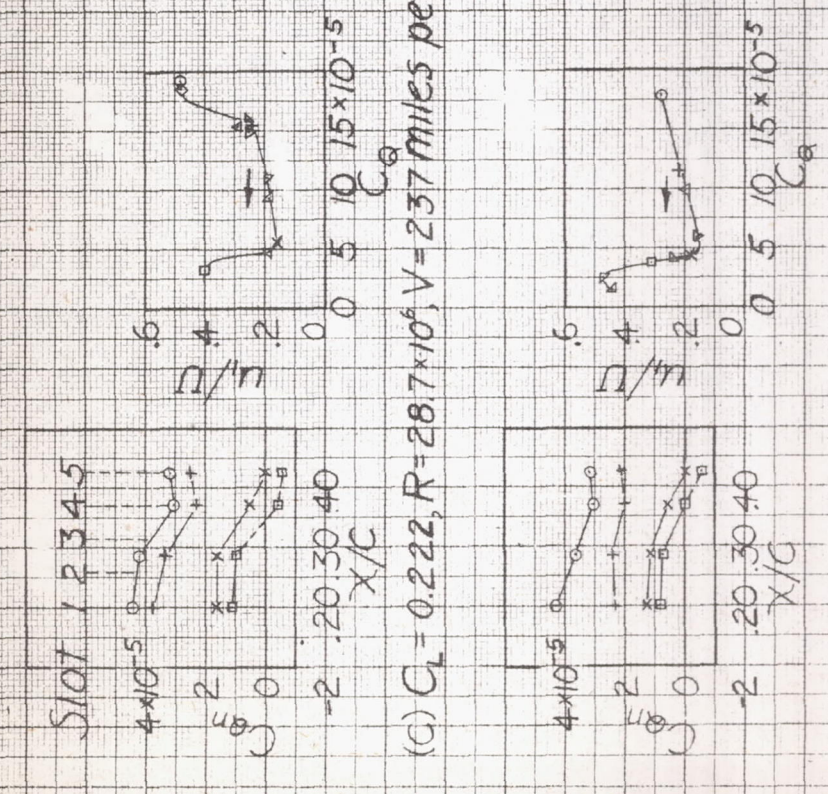 Slot 1 2 3 4 5
4×10⁻⁵
2
0
-2
C_Qn
.20 .30 .40
X/C
.6
.4
.2
0
0 5 10 15×10⁻⁵
C_Q
(C) C_L = 0.222, R=28.7×10⁶, V=237 miles pe
4×10⁻⁵
2
0
-2
C_Qn
.20 .30 .40
X/C
.6
.4
.2
0
0 5 10 15×10⁻⁵
C_Q